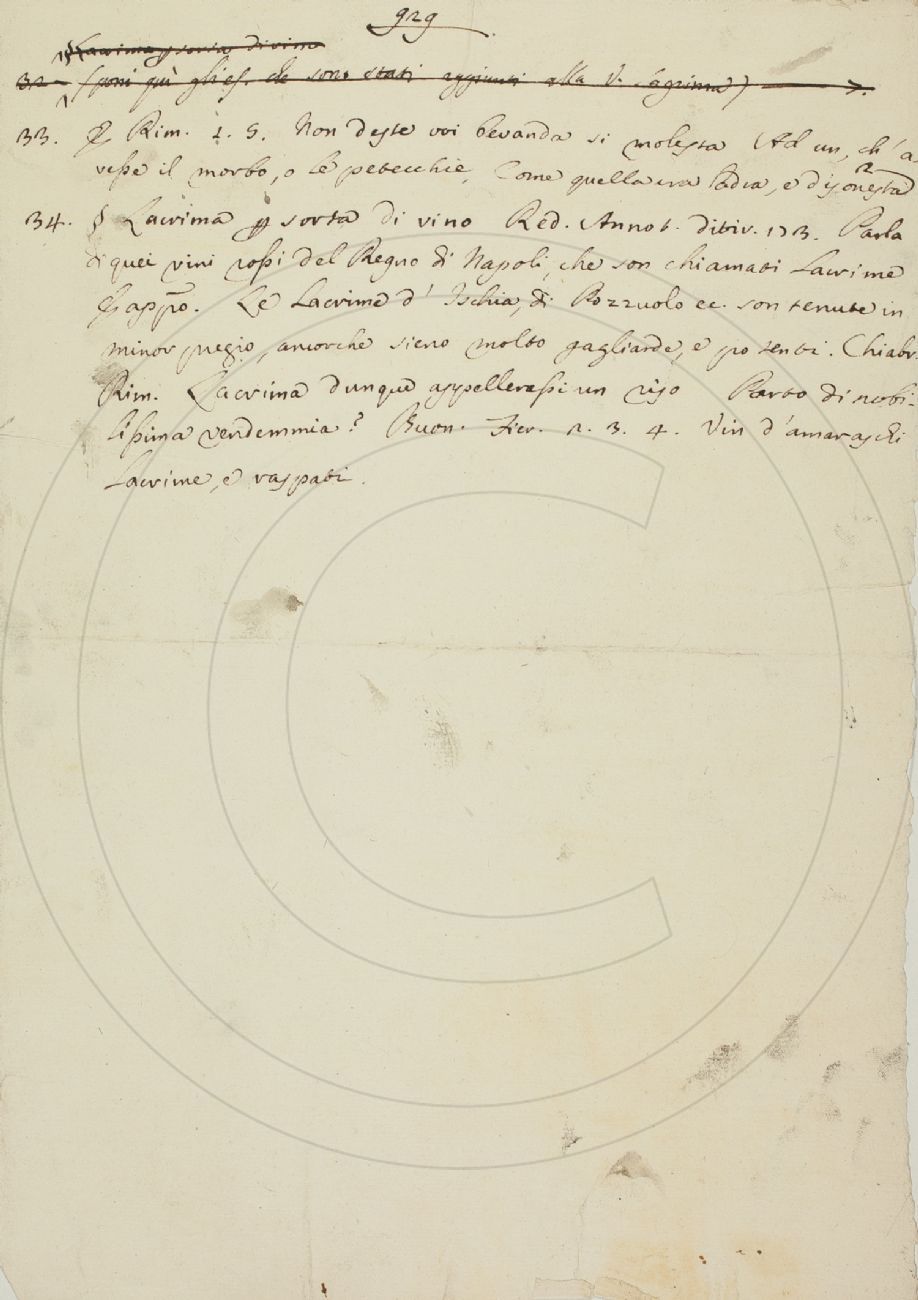 929
§ Lacrima p sorta di vino
32 (poni quì gli es. che sono stati aggiunti alla V. Lagrima)
33. E Rim. 1. 5. Non deste voi bevanda sì molesta Ad un, ch'a-
vesse il morbo, o le petecchie, Come quella era ladra, e disonesta
34. § Lacrima p sorta di vino Red. Annot. ditir. 173. Parla
di quei vini rossi del Regno di Napoli, che son chiamati Lacrime
E appo. Le Lacrime d' Ischia, di Pozzuolo ec. son tenute in
minor pregio, ancorchè sieno molto gagliarde, e potenti. Chiabr.
Rim. Lacrima dunque appellerassi un riso Parto di nobi-
lissima vendemmia? Buon. Fier. 2. 3. 4. Vin d'amaraschi
Lacrime, e raspati.